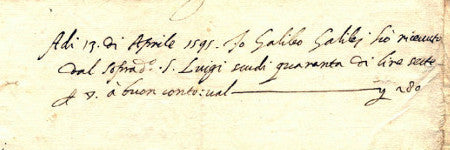 Adi 13. di Aprile 1595. Io Galileo Galilej hò riceuuto
dal soprad.º S. Luigi scudi quaranta di lire sette
à buon conto: ual 280